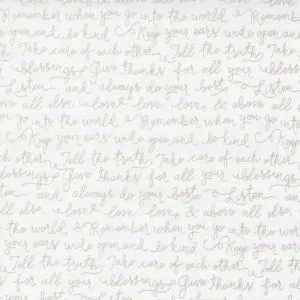 Remember when you go into the world Remember
and be kind Keep your ears wide open and be
each other Tell the truth Take care of each other
blessings Give thanks for all your blessings
Listen and always do your best Listen
above all else love love love & above all
go into the world Remember when you go into
Keep your ears wide open and be kind
each other Tell the truth Take care of each other
all your blessings Give thanks for all your blessings
and always do your best Listen and
all else love love love & above all else
the world Remember when you go into the world
your ears wide open and be kind Keep your
Tell the truth Take care of each other Tell
for all your blessings Give thanks for all